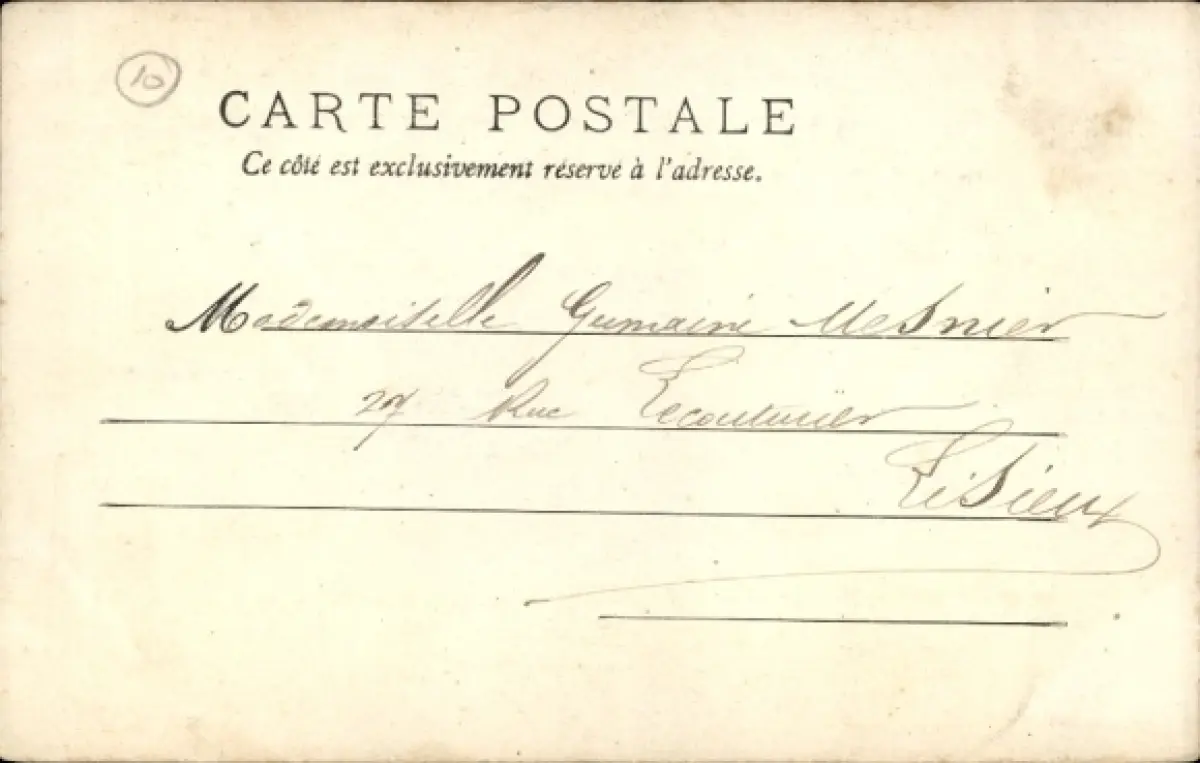 10
CARTE POSTALE
Ce côté est exclusivement réservé à l'adresse.
Mademoiselle Germaine Mesnier
27 Rue Lecouturier
Lisieux